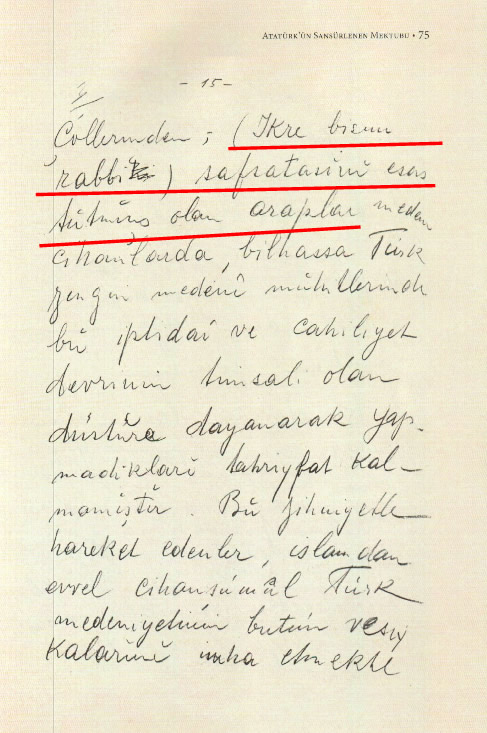 ATATÜRK'ÜN SANSÜRLENEN MEKTUBU • 75
- 15 -
Çöllerinden; (İkre bismi
rabbi) safsatasını esas
tutmuş olan araplar meden
cihanlarda, bilhassa Türk
zengin medenî muhitlerinde
bu iptidaî ve cahiliyet
devrinin timsali olan
düstüre dayanarak yap-
madıkları tahripat kal-
mamıştır. Bu zihniyetle
hareket edenler, islamdan
evvel cihanşümûl Türk
medeniyetinin bütün vesi
kalarını imha etmekte